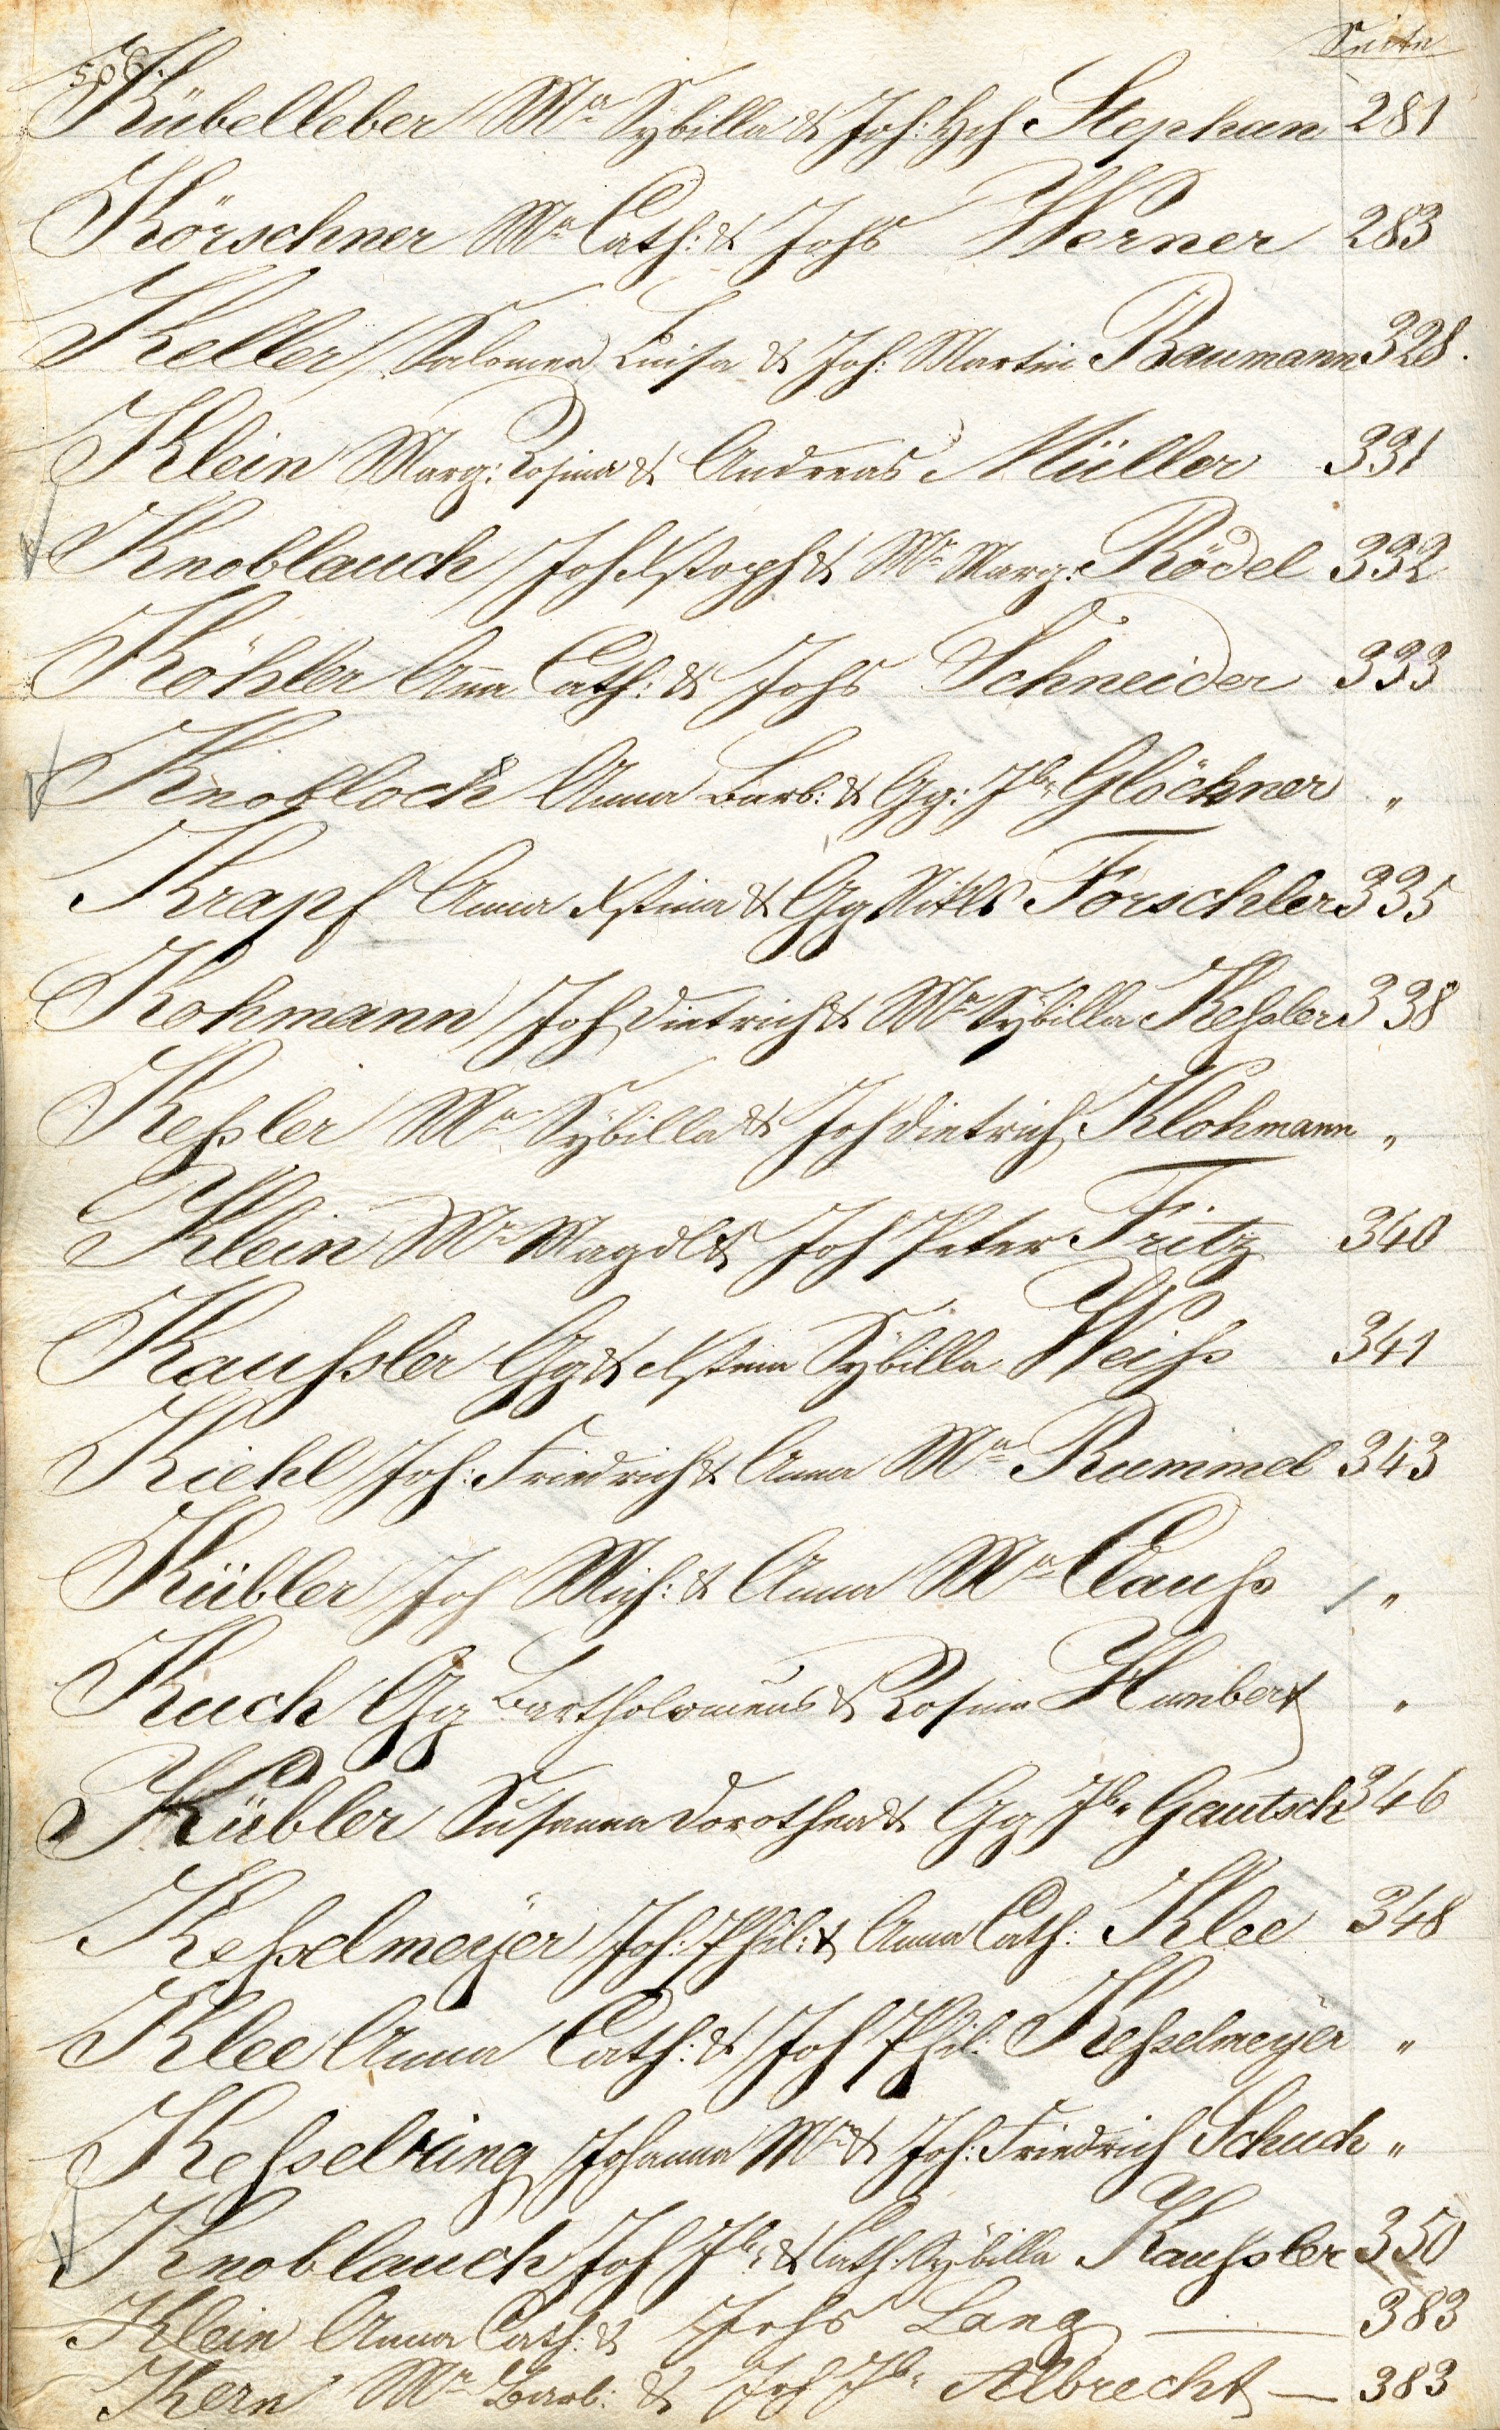 506. Seite
Kübelleber Ma Sybilla & Joh: Hch Stephan 281
Körschner Ma Cath: & Johs Werner 283
Keller Salomea Luisa & Joh: Martin Baumann 328.
Klein Marg: Rosina & Andreas Müller 331
Knoblauch Joh Xstoph & Ma Marg: Rödel 332
Köhler Ana Cath: & Johs Schneider 333
Knobloch Anna Barb: & Gg: Jb. Glöckner "
Krapf Anna Xstina & Gg Nikls Forschler 335
Kohmann Joh Dietrich & Ma Sybilla Keßler 338
Keßler Ma Sybilla & Joh Dietrich Klohmann "
Klein Ma Magdl & Joh Peter Fritz 340
Kaußler Gg & Xstina Sybilla Weiß 341
Kiehl Joh: Friedrich & Anna Ma Rummel 343
Kübler Joh Mich: & Anna Ma Clauß "
Kuch Gg Bartholomeus & Rosina Humbert "
Kübler Susanna Dorothea & Gg Jb. Gautsch 346
Keßelmeyer Joh: Phil: & Anna Cath: Klee 348
Klee Anna Cath: & Joh Phil: Keßelmeyer "
Keßelring Johanna Ma & Joh: Friedrich Schuch "
Knoblauch Joh Jb. & Cath: Sybilla Kaußler 350
Klein Anna Cath: & Johs Lang — 383
Kern Ma Barb: & Joh Jb. Albrecht — 383